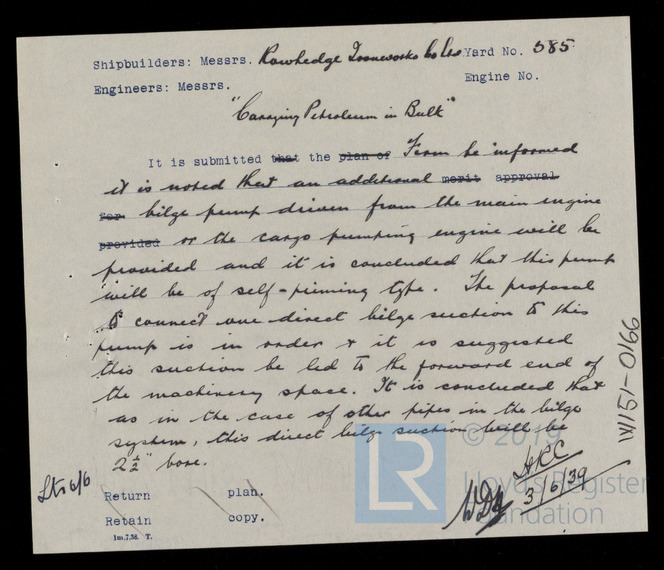 Shipbuilders: Messrs. Rowhedge Ironworks Co Ltd Yard No. 585
Engineers: Messrs. Engine No.
"Carrying Petroleum in Bulk"
It is submitted that the plan of Firm be informed
it is noted that an additional merit approval
for bilge pump driven from the main engine
provided or the cargo pumping engine will be
provided and it is concluded that this pump
will be of self-priming type. The proposal
to connect one direct bilge suction to this
pump is in order & it is suggested
this suction be led to the forward end of
the machinery space. It is concluded that
as in the case of other pipes in the bilge
system, this direct bilge suction will be
2½" bore.
Ltr 6/6
Return plan.
Retain copy.
1m.7.38. T.
HRC
3/6/39
W151-0166
LR
© 2019
Lloyd's Register
Foundation